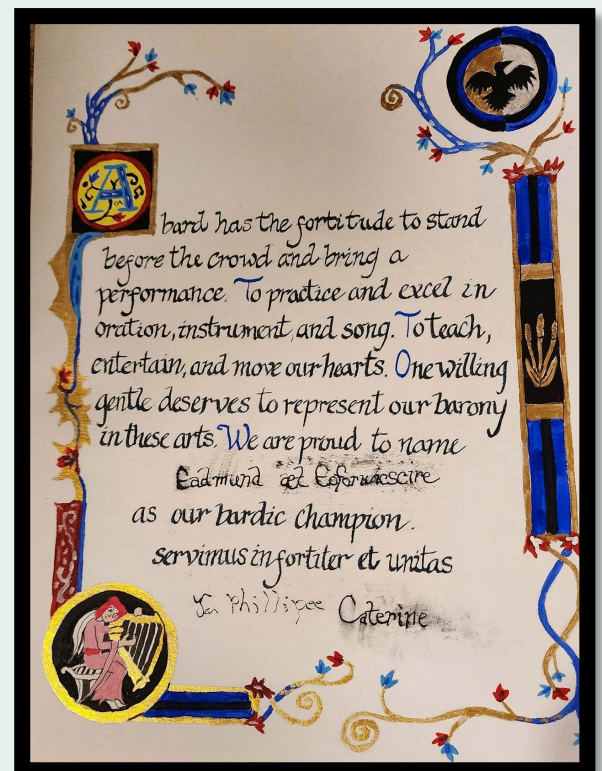 A bard has the fortitude to stand
before the crowd and bring a
performance. To practice and excel in
oration, instrument, and song. To teach,
entertain, and move our hearts. One willing
gentle deserves to represent our barony
in these arts. We are proud to name
Eadmund æt Eoforwicscire
as our bardic champion.
servimus in fortiter et unitas
Phillipee Caterine